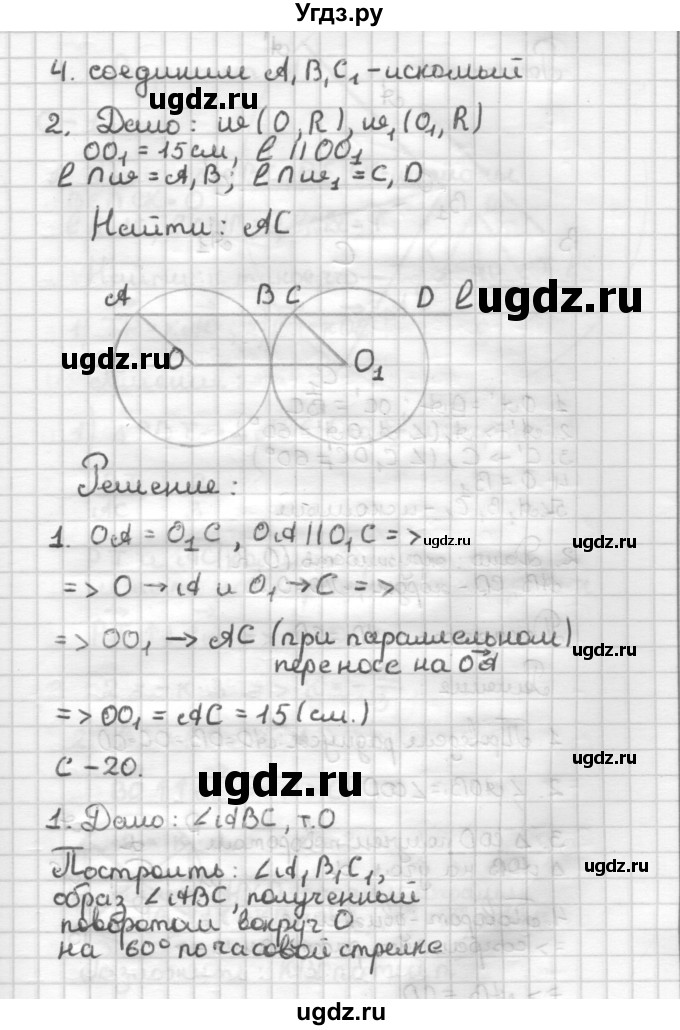 Угдз.ру
4. соединим A₁B₁C₁ - искомый
ugdz.ru
2. Дано: w(O,R), w₁(O₁,R)
OO₁ = 15 см, l || OO₁
l ∩ w = A,B; l ∩ w₁ = C,D
Найти: AC
A B C D l
ugdz.ru
ugdz.ru O O₁
Решение:
1. OA = O₁C, OA || O₁C =>
ugdz.ru ugdz.ru
=> O → A и O₁ → C =>
=> OO₁ → AC (при параллельном)
переносе на OA
ugdz.ru
=> OO₁ = AC = 15 (см.)
C - 20.
ugdz.ru
1. Дано: ∠ABC, т.O
Построить: ∠A₁B₁C₁,
ugdz.ru
образ ∠ABC, полученный
поворотом вокруг O
на 60° по часовой стрелке
ugdz.ru
ugdz.ru